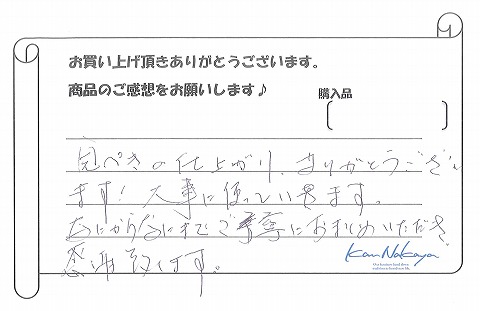 お買い上げ頂きありがとうございます。
商品のご感想をお願いします♪
購入品
完ぺきの仕上がり、ありがとうござい
ます！大事に使っていきます。
なにからなにまでご丁寧におまとめいただき
感謝致します。
Kan Nakaya